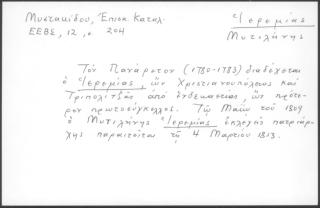 Μυστακίδου, Ἐπισκ. Καταλ.
ΕΕΒΣ, 12, σ. 204
Ἱερεμίας
Μυτιλήνης
Τὸν Πανάρετον (1780-1783) διαδέχεται
ὁ Ἱερεμίας, ὢν Χριστιανουπόλεως καὶ
Τριπολιτζᾶς ἀπὸ ἑνδεκαετίας, ὡς πρότε-
ρον πρωτοσύγκελλος. Τῷ Μαΐῳ τοῦ 1809
ὁ Μυτιλήνης Ἱερεμίας ἐκλεγεὶς πατριάρ-
χης παραιτεῖται τῇ 4 Μαρτίου 1813.